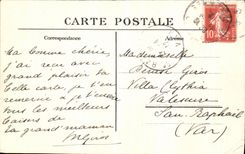 CARTE POSTALE
Correspondance
Ma bonne chérie,
j'ai reçu avec
grand plaisir ta
jolie carte, je t'en
remercie et t'envoie
tous les meilleurs
baisers de
ta grand maman
Mademoiselle
Villa Clythia
Valescure
San Raphaël
(Var)
10